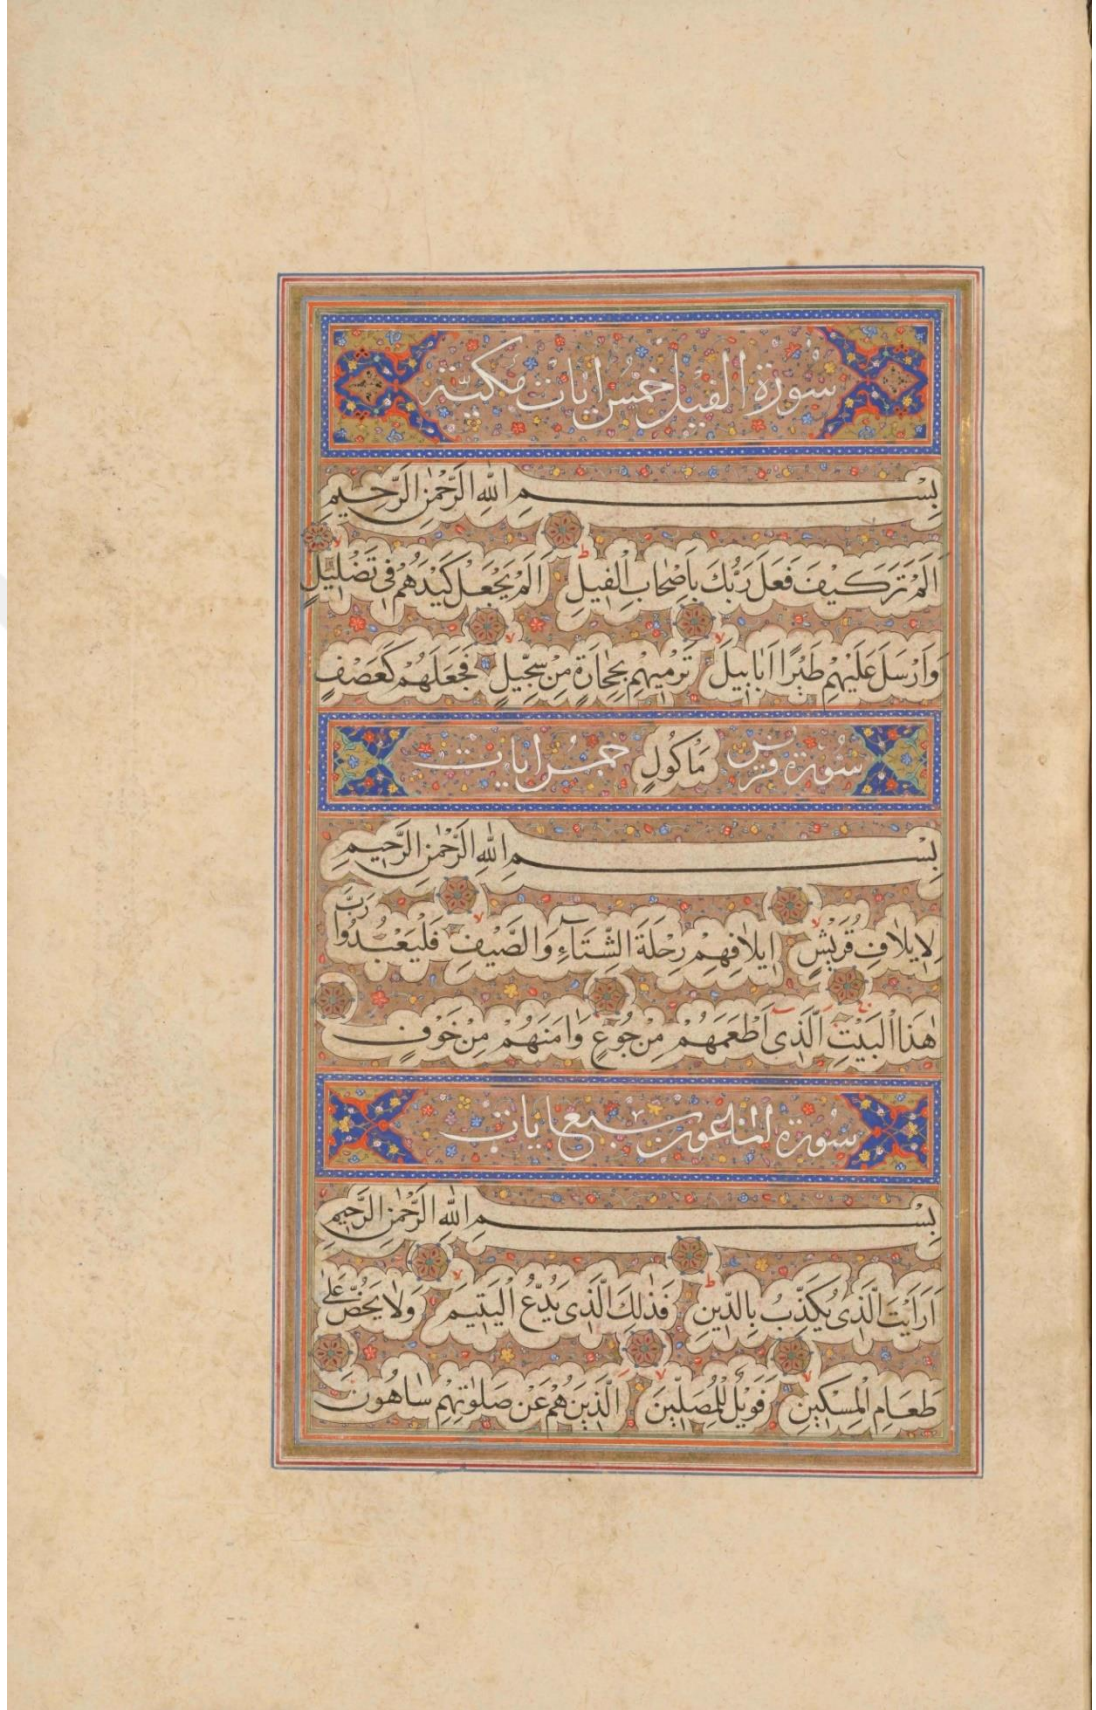 سورة الفيل خمس ايات مكية
بِسْمِ اللهِ الرَّحْمٰنِ الرَّحِيمِ
اَلَمْ تَرَ كَيْفَ فَعَلَ رَبُّكَ بِاَصْحَابِ الْفِيلِ اَلَمْ يَجْعَلْ كَيْدَهُمْ فِى تَضْلِيلٍ
وَاَرْسَلَ عَلَيْهِمْ طَيْرًا اَبَابِيلَ تَرْمِيهِمْ بِحِجَارَةٍ مِنْ سِجِّيلٍ فَجَعَلَهُمْ كَعَصْفٍ
سورة قريش مَاْكُولٍ خمس ايات
بِسْمِ اللهِ الرَّحْمٰنِ الرَّحِيمِ
لِايلَافِ قُرَيْشٍ ايلَافِهِمْ رِحْلَةَ الشِّتَآءِ وَالصَّيْفِ فَلْيَعْبُدُوا رَبَّ
هٰذَا الْبَيْتِ اَلَّذِى اَطْعَمَهُمْ مِنْ جُوعٍ وَاٰمَنَهُمْ مِنْ خَوْفٍ
سورة الماعون سبع ايات
بِسْمِ اللهِ الرَّحْمٰنِ الرَّحِيمِ
اَرَاَيْتَ الَّذِى يُكَذِّبُ بِالدِّينِ فَذٰلِكَ الَّذِى يَدُعُّ الْيَتِيمَ وَلَا يَحُضُّ عَلٰى
طَعَامِ الْمِسْكِينِ فَوَيْلٌ لِلْمُصَلِّينَ اَلَّذِينَ هُمْ عَنْ صَلٰوتِهِمْ سَاهُونَ